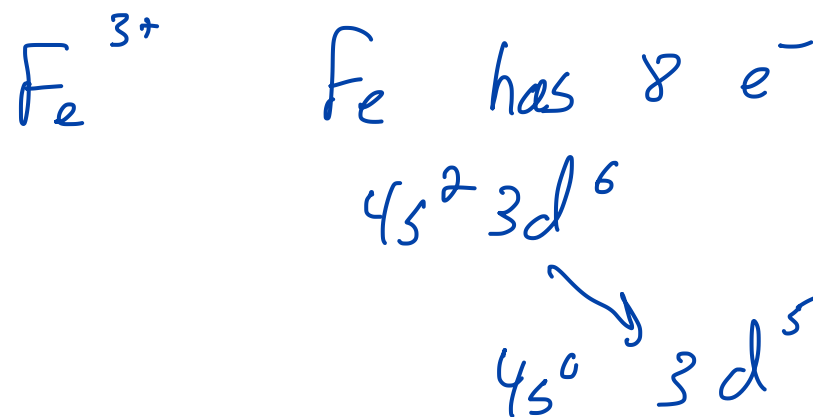 Fe³⁺ Fe has 8 e⁻
4s² 3d⁶
4s⁰ 3d⁵